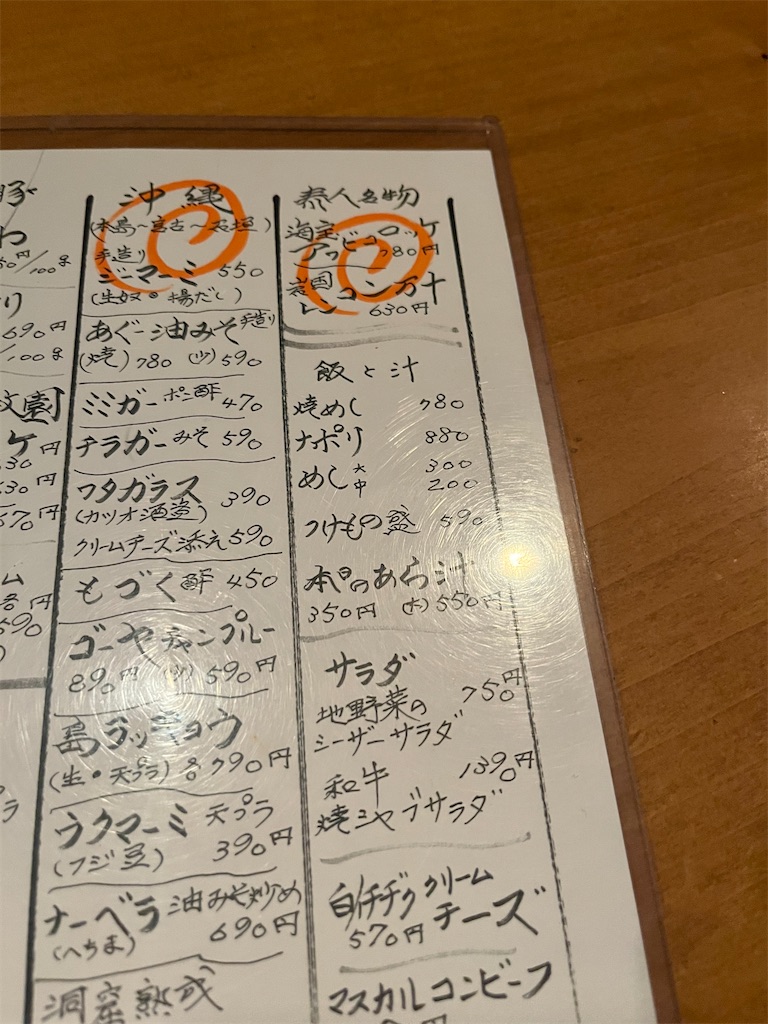 豚
わ
円/100g
り
690円
/100g
園
ケ
630円
670円
ム
各円
590
沖縄
(本島〜宮古〜石垣)
手造り
ジーマーミ 550
(生奴・揚だし)
あぐー油みそ手造り
(焼)780 (少)590
ミミガーポン酢 470
チラガーみそ 590
ワタガラス 390
(カツオ酒盗)
クリームチーズ添え590
もづく酢 450
ゴーヤチャンプルー
890円 (少)590円
島ラッキョウ
(生・天プラ)各790円
ウクマーミ天プラ
(フジ豆) 390円
ナーベラ油みそ炒め
(へちま) 690円
洞窟熟成
泰人名物
海宝コロッケ
アワビ 780円
岩国
レンコン万十
630円
飯と汁
焼めし 780
ナポリ 880
めし大 300
中 200
つけもの盛 590
本日のあら汁
350円 (大)550円
サラダ
地野菜の 750円
シーザーサラダ
和牛 1390円
焼シャブサラダ
自付チヂククリーム
570円チーズ
マスカルコンビーフ
円